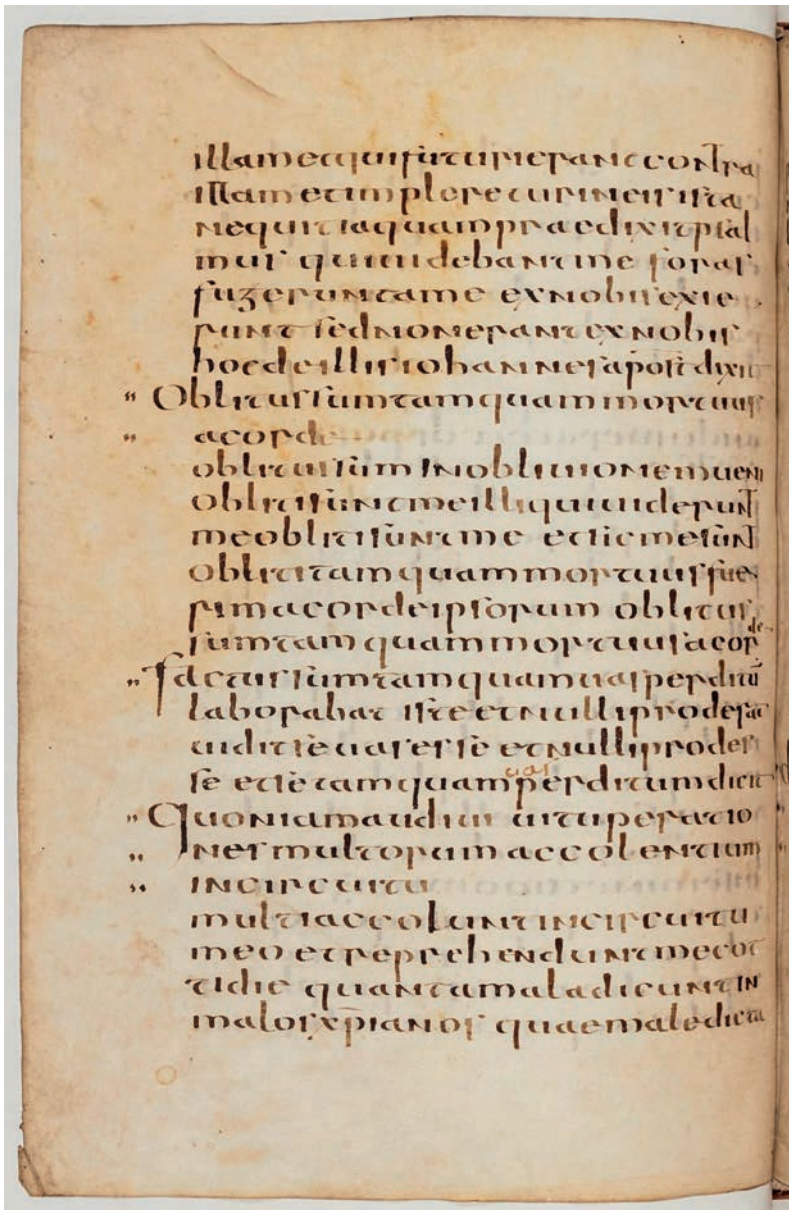 illam et qui futuri erant contra
illam et implere ista
nequitia quam praedixit psal
mus qui uidebant me foras
fugerunt a me ex nobis exie
runt sed non erant ex nobis
hoc de illis iohannes apost dixit
Oblitus sum tamquam mortuus
a corde
oblitus sum in obliuionem ueni
obliti sunt me illi qui uiderunt
me obliti sunt me et sic me sunt
obliti tamquam mortuus fue
rim a corde ipsorum oblitus
sum tamquam mortuus a cor de
factus sum tamquam uas perditū
laborabat iste et nulli proderat
uidit se uas esse et nulli prodes
se et se tamquam uas perditum dicit
Quoniam audiui uituperatio
nes multorum accolentium
in circuitu
multi accolunt in circuitu
meo et reprehendunt me cot
tidie quanta mala dicunt in
malos xp̄ianos quae maledicta